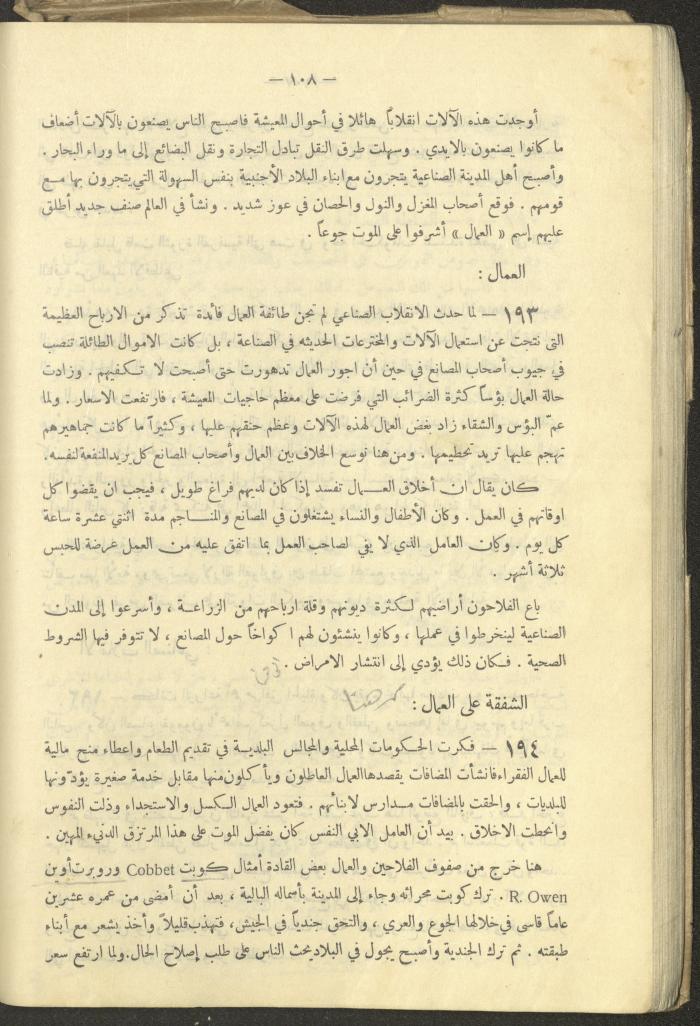 — ١٠٨ —
أوجدت هذه الآلات انقلاباً هائلا في أحوال المعيشة فاصبح الناس يصنعون بالآلات أضعاف
ما كانوا يصنعون بالايدي . وسهلت طرق النقل تبادل التجارة ونقل البضائع إلى ما وراء البحار .
وأصبح أهل المدينة الصناعية يتجرون مع ابناء البلاد الأجنبية بنفس السهولة التي يتجرون بها مع
قومهم . فوقع أصحاب المغزل والنول والحصان في عوز شديد . ونشأ في العالم صنف جديد أطلق
عليهم إسم « العمال » أشرفوا على الموت جوعاً .
العمال :
١٩٣ — لما حدث الانقلاب الصناعي لم تجن طائفة العمال فائدة تذكر من الارباح العظيمة
التي نتجت عن استعمال الآلات والمخترعات الحديثه في الصناعة ، بل كانت الاموال الطائلة تنصب
في جيوب أصحاب المصانع في حين أن اجور العمال تدهورت حتى أصبحت لا تكفيهم . وزادت
حالة العمال بؤساً كثرة الضرائب التي فرضت على معظم حاجيات المعيشة ، فارتفعت الاسعار . ولما
عمّ البؤس والشقاء زاد بغض العمال لهذه الآلات وعظم حنقهم عليها ، وكثيراً ما كانت جماهيرهم
تهجم عليها تريد تحطيمها . ومن هنا توسع الخلاف بين العمال وأصحاب المصانع كل يريد المنفعة لنفسه.
كان يقال ان أخلاق العمال تفسد إذا كان لديهم فراغ طويل ، فيجب ان يقضوا كل
اوقاتهم في العمل . وكان الأطفال والنساء يشتغلون في المصانع والمناجم مدة اثنتي عشرة ساعة
كل يوم . وكان العامل الذي لا يفي لصاحب العمل بما اتفق عليه من العمل عرضة للحبس
ثلاثة أشهر .
باع الفلاحون أراضيهم لكثرة ديونهم وقلة ارباحهم من الزراعة ، وأسرعوا إلى المدن
الصناعية لينخرطوا في عملها ، وكانوا ينشئون لهم اكواخاً حول المصانع ، لا تتوفر فيها الشروط
الصحية . فكان ذلك يؤدي إلى انتشار الامراض .
الشفقة على العمال :
١٩٤ — فكرت الحكومات المحلية والمجالس البلدية في تقديم الطعام واعطاء منح مالية
للعمال الفقراء فانشأت المضافات يقصدها العمال العاطلون ويأكلون منها مقابل خدمة صغيرة يؤدّونها
للبلديات ، والحقت بالمضافات مدارس لابنائهم . فتعود العمال الكسل والاستجداء وذلت النفوس
وانحطت الاخلاق . بيد أن العامل الابي النفس كان يفضل الموت على هذا المرتزق الدنيء المهين .
هنا خرج من صفوف الفلاحين والعمال بعض القادة أمثال كوبت Cobbet وروبرت أوين
R. Owen . ترك كوبت محراثه وجاء إلى المدينة بأسماله البالية ، بعد أن أمضى من عمره عشرين
عاماً قاسى في خلالها الجوع والعري ، والتحق جندياً في الجيش، فتهذب قليلاً وأخذ يشعر مع أبناء
طبقته . ثم ترك الجندية وأصبح يجول في البلاد يحث الناس على طلب إصلاح الحال. ولما ارتفع سعر